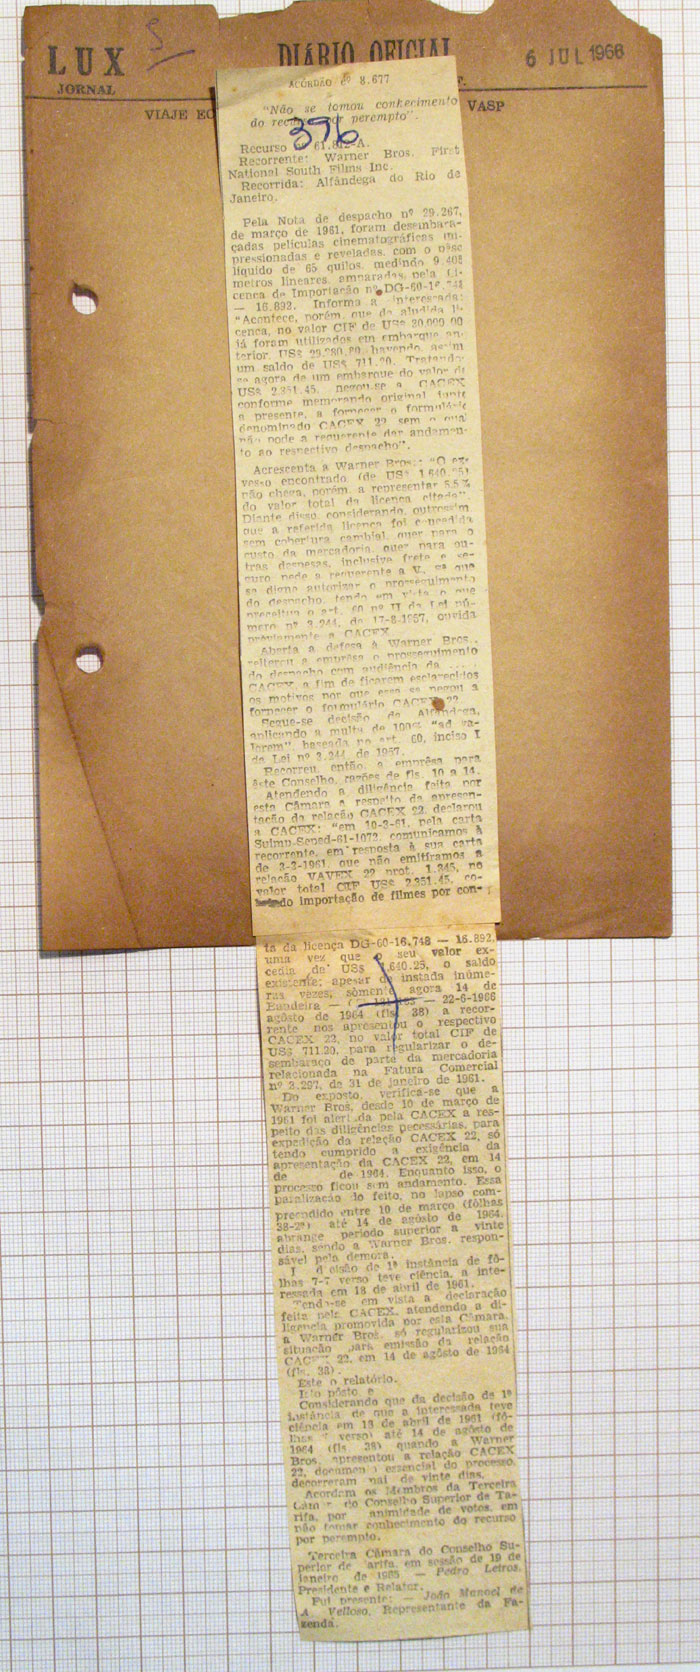 LUX
JORNAL
DIÁRIO OFICIAL
6 JUL 1966
VIAJE
VASP
ACÓRDÃO nº 8.677
"Não se tomou conhecimento
do recurso por perempto".
396
Recurso nº 61.812-A.
Recorrente: Warner Bros. First
National South Films Inc.
Recorrida: Alfândega do Rio de
Janeiro.
Pela Nota de despacho nº 29.267,
de março de 1961, foram desembara-
çadas películas cinematográficas im-
pressionadas e reveladas, com o pêso
líquido de 65 quilos, medindo 9.408
metros lineares, amparadas pela Li-
cença de Importação nº DG-60-16.748
— 16.892. Informa a interessada:
"Acontece, porém, que da aludida li-
cença, no valor CIF de US$ 30.000,00
já foram utilizados em embarque an-
terior US$ havendo, assim
um saldo de US$ 711,20. Tratando-
se agora de um embarque do valor de
US$ 2.351,45, negou-se a CACEX
conforme memorando original junto
a presente, a fornecer o formulário
denominado CACEX 22 sem o qual
não pode a requerente dar andamen-
to ao respectivo despacho".
Acrescenta a Warner Bros.: "O ex-
cesso encontrado (de US$ 1.640,25)
não chega, porém, a representar 5,5%
do valor total da licença citada".
Diante disso, considerando, outrossim
que a referida licença foi concedida
sem cobertura cambial, quer para o
custo da mercadoria, quer para ou-
tras despesas, inclusive frete e se-
guro pede a requerente a V. Sª que
se digne autorizar o prosseguimento
do despacho, tendo em vista o que
preceitua o art. 60 nº II da Lei nú-
mero nº 3.244, de 17-8-1957, ouvida
prèviamente a CACEX.
Aberta a defesa à Warner Bros.,
reiterou a emprêsa o prosseguimento
do despacho com audiência da .....
CACEX, a fim de ficarem esclarecidos
os motivos por que essa se negou a
fornecer o formulário CACEX 22.
Segue-se decisão da Alfândega,
aplicando a multa de 100% "ad va-
lorem", baseada no art. 60, inciso I
da Lei nº 3.244, de 1957.
Recorreu, então, a emprêsa para
êste Conselho, razões de fls. 10 a 14.
Atendendo a diligência feita por
esta Câmara a respeito da apresen-
tação da relação CACEX 22, declarou
a CACEX: "em 10-3-61, pela carta
Suimu-Seped-61-1072, comunicamos à
recorrente, em resposta à sua carta
de 3-3-1961, que não emitiramos a
relação VAVEX 22 prot. 1.345, no
valor total CIF US$ 2.351,45, co-
brindo importação de filmes por con-
ta da licença DG-60-16.748 — 16.892,
uma vez que o seu valor ex-
cedia de US$ 1.640,25, o saldo
existente; apesar de instada inúme-
ras vêzes, sòmente agora 14 de
Bandeira — — 22-6-1966
agôsto de 1964 (fls. 38) a recor-
rente nos apresentou o respectivo
CACEX 22, no valor total CIF de
US$ 711,20, para regularizar o de-
sembaraço de parte da mercadoria
relacionada na Fatura Comercial
nº 3.267, de 31 de janeiro de 1961.
Do exposto, verifica-se que a
Warner Bros, desde 10 de março de
1961 foi alertada pela CACEX a res-
peito das diligências necessárias, para
expedição da relação CACEX 22, só
tendo cumprido a exigência da
apresentação da CACEX 22, em 14
de de 1964. Enquanto isso, o
processo ficou sem andamento. Essa
paralização do feito, no lapso com-
preendido entre 10 de março (fôlhas
38-2º) até 14 de agôsto de 1964,
abrange período superior a vinte
dias, sendo a Warner Bros. respon-
sável pela demora.
decisão de 1ª instância de fô-
lhas 7-7 verso teve ciência, a inte-
ressada em 18 de abril de 1961.
Tendo-se em vista a declaração
feita pela CACEX, atendendo a di-
ligência promovida por esta Câmara,
a Warner Bros. só regularizou sua
situação para emissão da relação
CACEX 22, em 14 de agôsto de 1964
(fls. 38).
Este o relatório.
Isto pôsto e
Considerando que da decisão de 1ª
instância de que a interessada teve
ciência em 18 de abril de 1961 (fô-
lhas 7 verso) até 14 de agôsto de
1964 (fls. 38) quando a Warner
Bros. apresentou a relação CACEX
22, documento essencial do processo,
decorreram mais de vinte dias.
Acordam os Membros da Terceira
Câmara do Conselho Superior de Ta-
rifa, por unanimidade de votos, em
não tomar conhecimento do recurso
por perempto.
Terceira Câmara do Conselho Su-
perior de Tarifa, em sessão de 19 de
janeiro de 1965 — Pedro Leiros,
Presidente e Relator.
Fui presente: — João Manoel de
A. Velloso, Representante da Fa-
zenda.